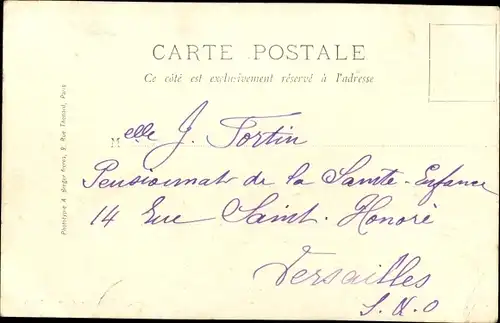 CARTE POSTALE
Ce côté est exclusivement réservé à l'adresse
Melle J. Fortin
Pensionnat de la Sainte-Enfance
14 Rue Saint-Honoré
Versailles
S. &. O
Phototypie A. Berger frères, 9, Rue Thénard, Paris